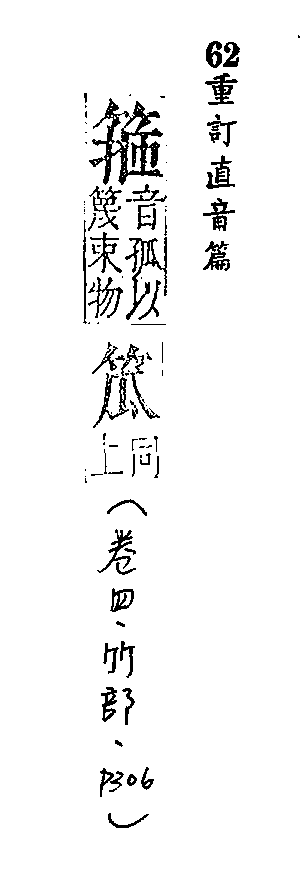 62重訂直音篇
箍
音孤以
篾束物
笟
同
上
(卷四、竹部、P306)